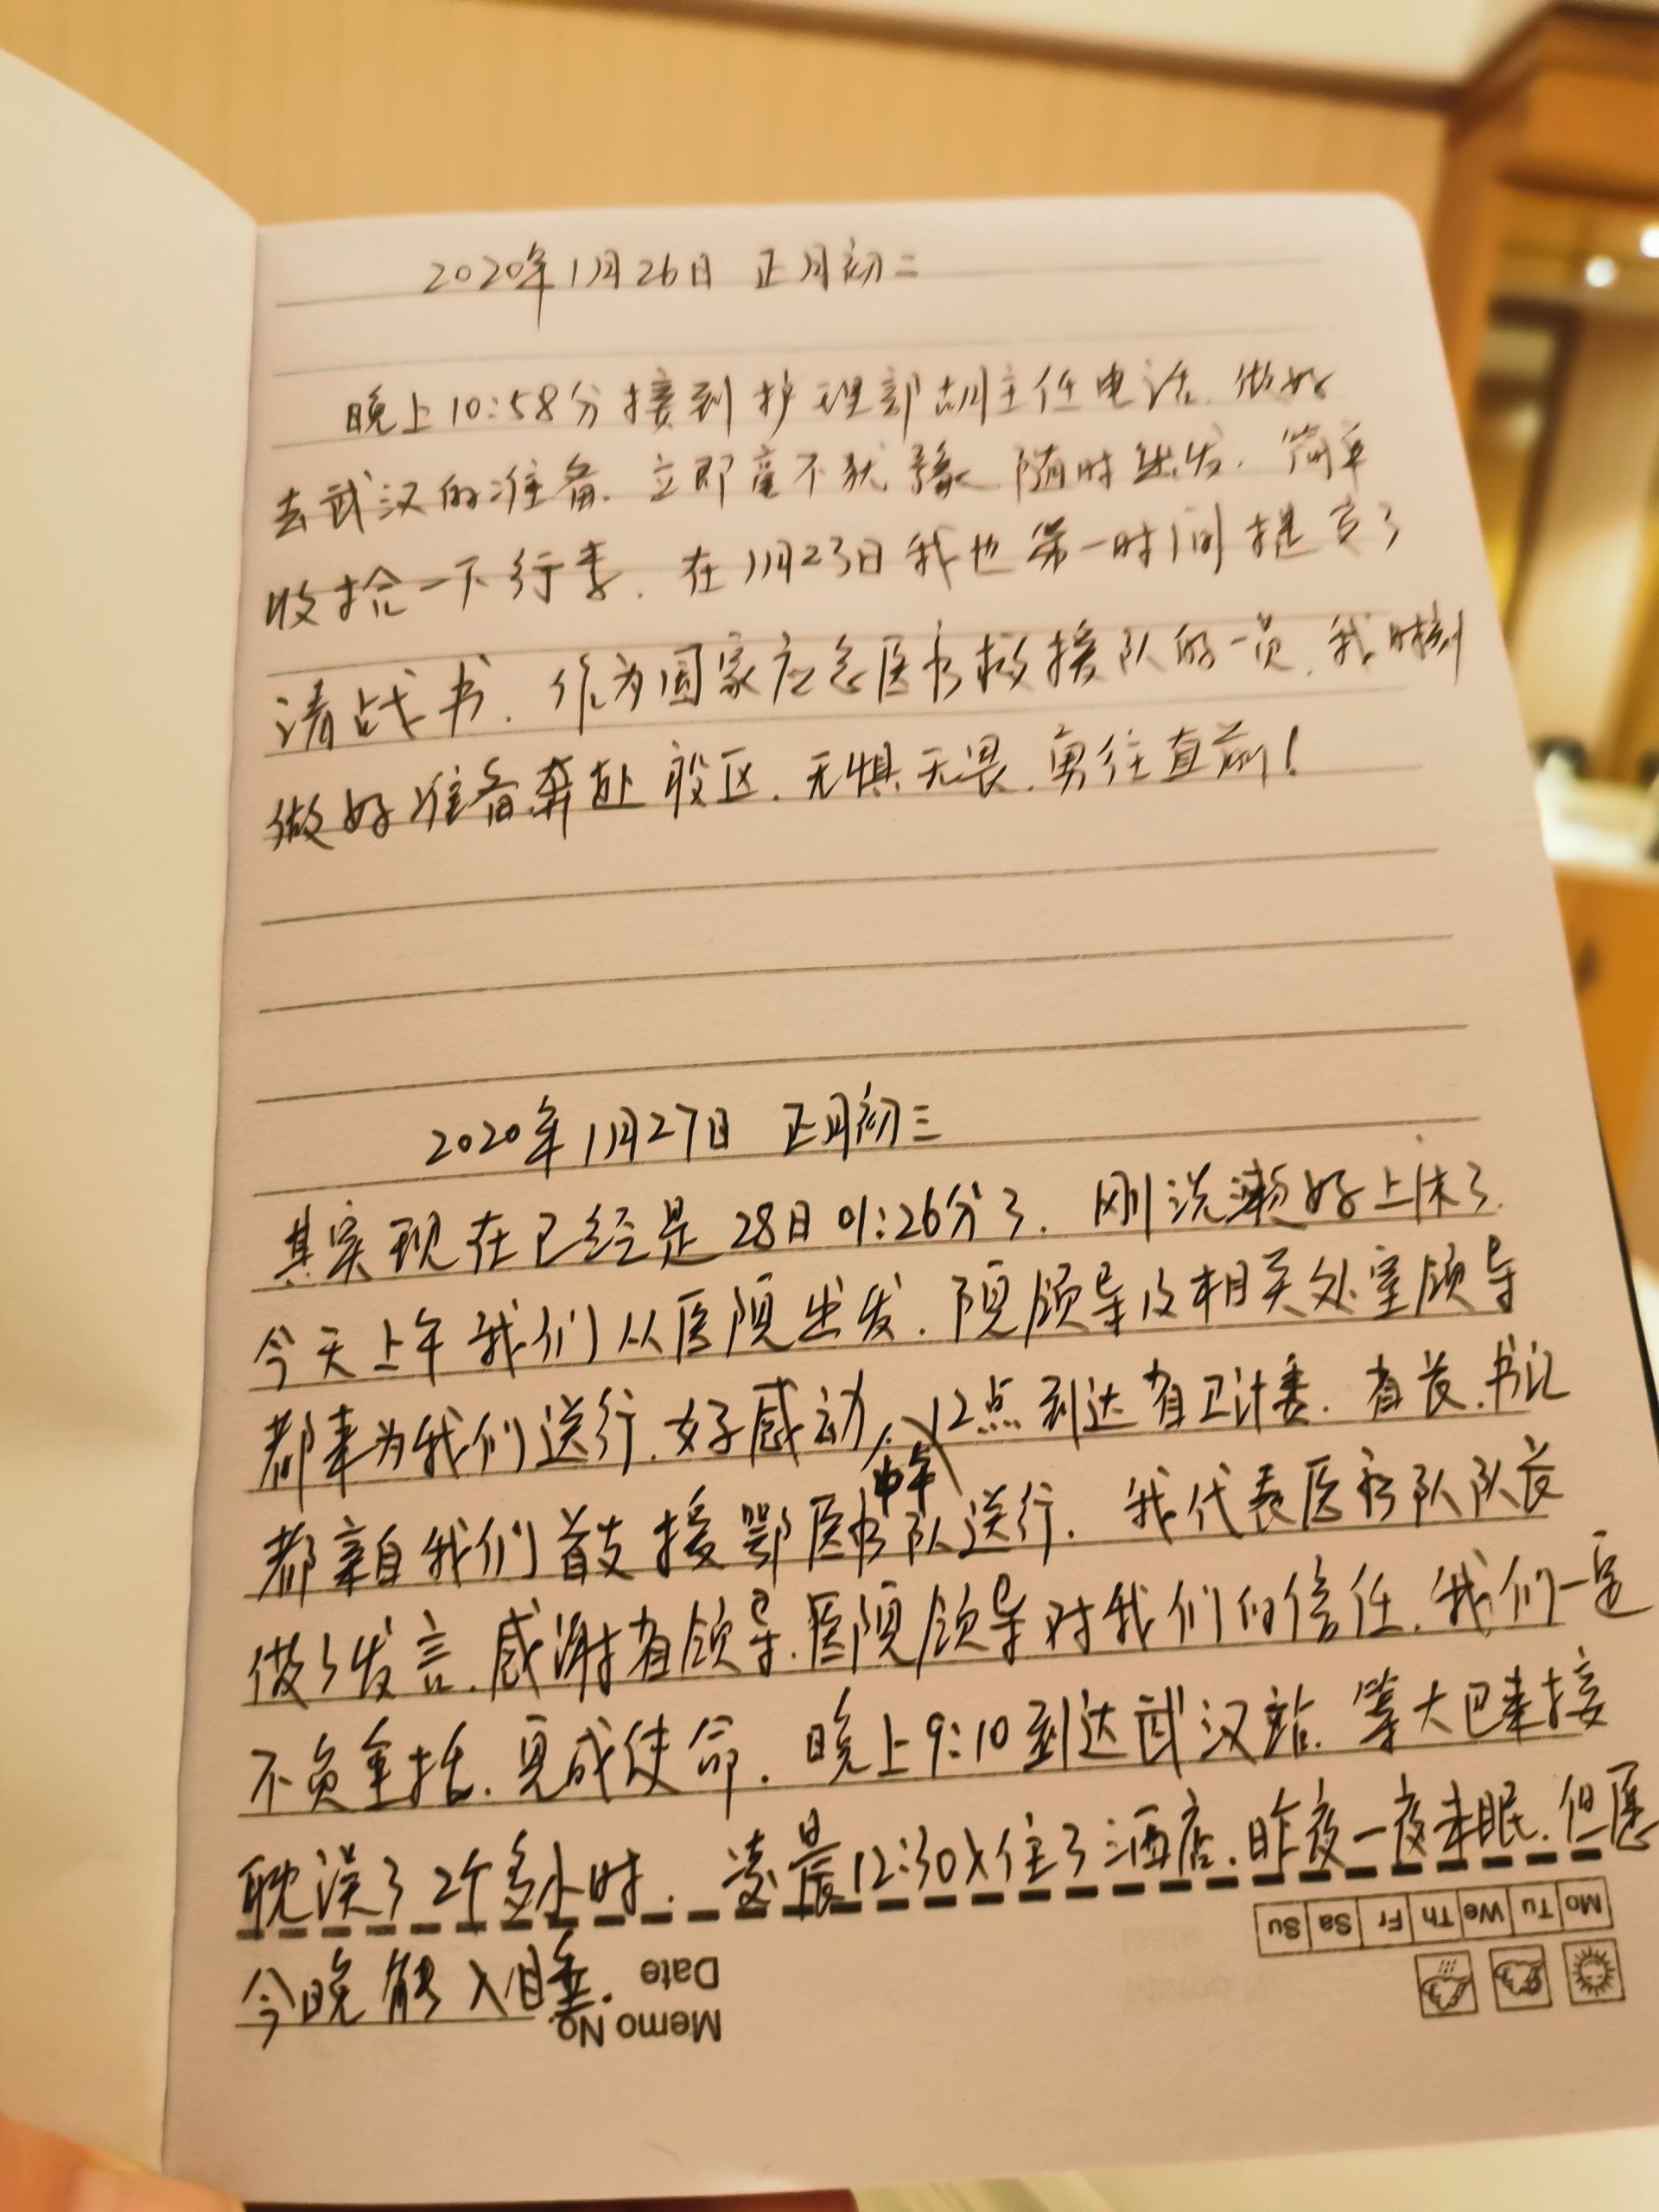 2020年1月26日 正月初二
晚上10:58分接到护理部胡主任电话.做好
去武汉的准备.立即毫不犹豫随时出发.简单
收拾一下行李.在1月23日我也第一时间提交了
请战书.作为国家应急医疗救援队的一员,我时刻
做好准备奔赴疫区.无惧无畏.勇往直前!
2020年1月27日 正月初三
其实现在已经是28日01:26分了.刚洗漱好上床了.
今天上午我们从医院出发.院领导及相关处室领导
都来为我们送行.好感动,中午12点到达省卫计委.省长.书记
都亲自我们首支援鄂医疗队送行.我代表医疗队队长
做了发言.感谢省领导.医院领导对我们的信任.我们一定
不负重托.完成使命.晚上9:10到达武汉站.等大巴来接
耽误了2个多小时.凌晨12:30入住了酒店.昨夜一夜未眠.但愿
今晚能入睡.
Mo Tu We Th Fr Sa Su
Memo No.
Date